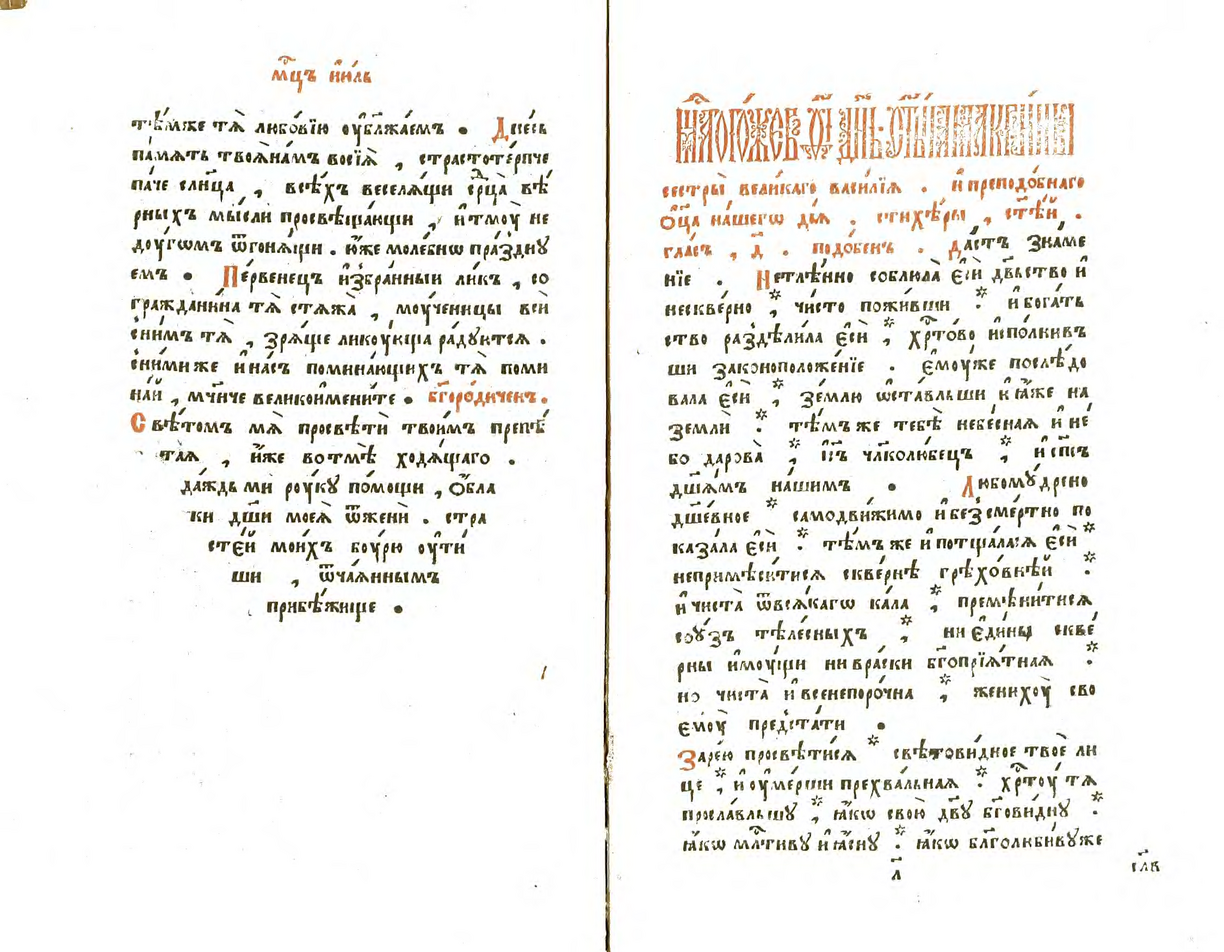 мⷭ҇цъ і҆ю́ль
тѣ́мже тѧ̀ любо́вїю оу҆блажа́емъ • Дне́сь
па́мѧть твоѧ̀на́мъ восїѧ̀ , страстоте́рпче
па́че слн҃ца , всѣ́хъ веселѧ́щи ср҃дца̀ вѣ́
рныхъ мы́сли просвѣща́ющи , и҆тмоу̀ не
доу́гѡмъ ѿгонѧ́щи . ю҆́же моле́бнѡ пра́здну
емъ • Пе́рвенецъ и҆збра́нныи ли́къ , со
гражⷣани́на тѧ̀ стѧжа̀ , моу́ченицы всѝ
сни́мъ тѧ̀ , зрѧ́ще лику́юща ра́дуютсѧ .
сни́миже и҆на́съ помина́ющихъ тѧ̀ помѧ
на́й , мч҃ниче великоимени́те • бг҃оро́диченъ .
Свѣ́томъ мѧ̀ просвѣтѝ твои́мъ препѣ́
таѧ , и҆́же вотмѣ̀ ходѧ́щаго .
да́ждь ми роу́ку по́мощи , о҆́бла
ки дш҃ѝ моеѧ̀ ѿженѝ . стра
сте́й мои́хъ боу́рю оу҆ти
шѝ , ѿча́ѧннымъ
прибѣ́жище •
сестры̀ вели́каго васи́лїѧ . и҆ преподо́бнаго
ѻ҆ц҃а̀ на́шегѡ дїѧ̀ . стихѣ́ры , ст҃ѣ́й .
гла́съ , д҃ . подо́бенъ . Да́стъ зна́ме
нїе . Нетлѣ́нно соблюла̀ є҆сѝ дв҃ьство и҆
нескве́рно ⁘ чи́сто пожи́вши ⁘ и҆ бога́т
ство раздѣли́ла є҆сѝ ⁘ хрⷭ҇то́во и҆спо́лнивъ
ши законоположе́нїе . є҆моу́же послѣ́до
вала є҆сѝ ⁘ зе́млю ѡ҆ста́вльши и҆ ꙗ҆́же на
землѝ ⁘ тѣ́мъже тебѣ̀ небе́снаѧ и҆ не́
бо дарова̀ ⁘ ꙗ҆́къ чл҃колю́бецъ ⁘ и҆ сп҃съ
дш҃а́мъ на́шимъ • Любому́дрено
дш҃е́вное ⁘ самодви́жимо и҆ безсме́ртно по
каза́ла є҆сѝ ⁘ тѣ́мъ же и҆ потща́ласѧ є҆сѝ ⁘
неприме́ситисѧ скве́рнѣ грѣхо́внѣй ⁘
и҆ чиста̀ ѿвсѧ́кагѡ ка́ла ⁘ премѣни́тисѧ
сою́зъ тѣле́сныхъ ⁘ ни є҆ди́ны скве́
рны и҆моу́щи ни вра́ски бг҃опрїѧ́тнаѧ ⁘
но чиста̀ и҆ всенепоро́чна ⁘ женихоу̀ сво
є҆моу̀ предста́ти •
Заре́ю просвѣти́сѧ ⁘ свѣтови́дное твоѐ ли
цѐ ⁘ и҆ оу҆ме́рши прехва́льнаѧ ⁘ хрⷭ҇тоу̀ тѧ
просла́вльшу ⁘ ꙗ҆́кѡ свою̀ дв҃у бг҃ови́дну ⁘
ꙗ҆́кѡ млⷭ҇тиву и҆ ꙗ҆́сну ⁘ ꙗ҆́кѡ бл҃голюби́вуже
л҃
сл҃в